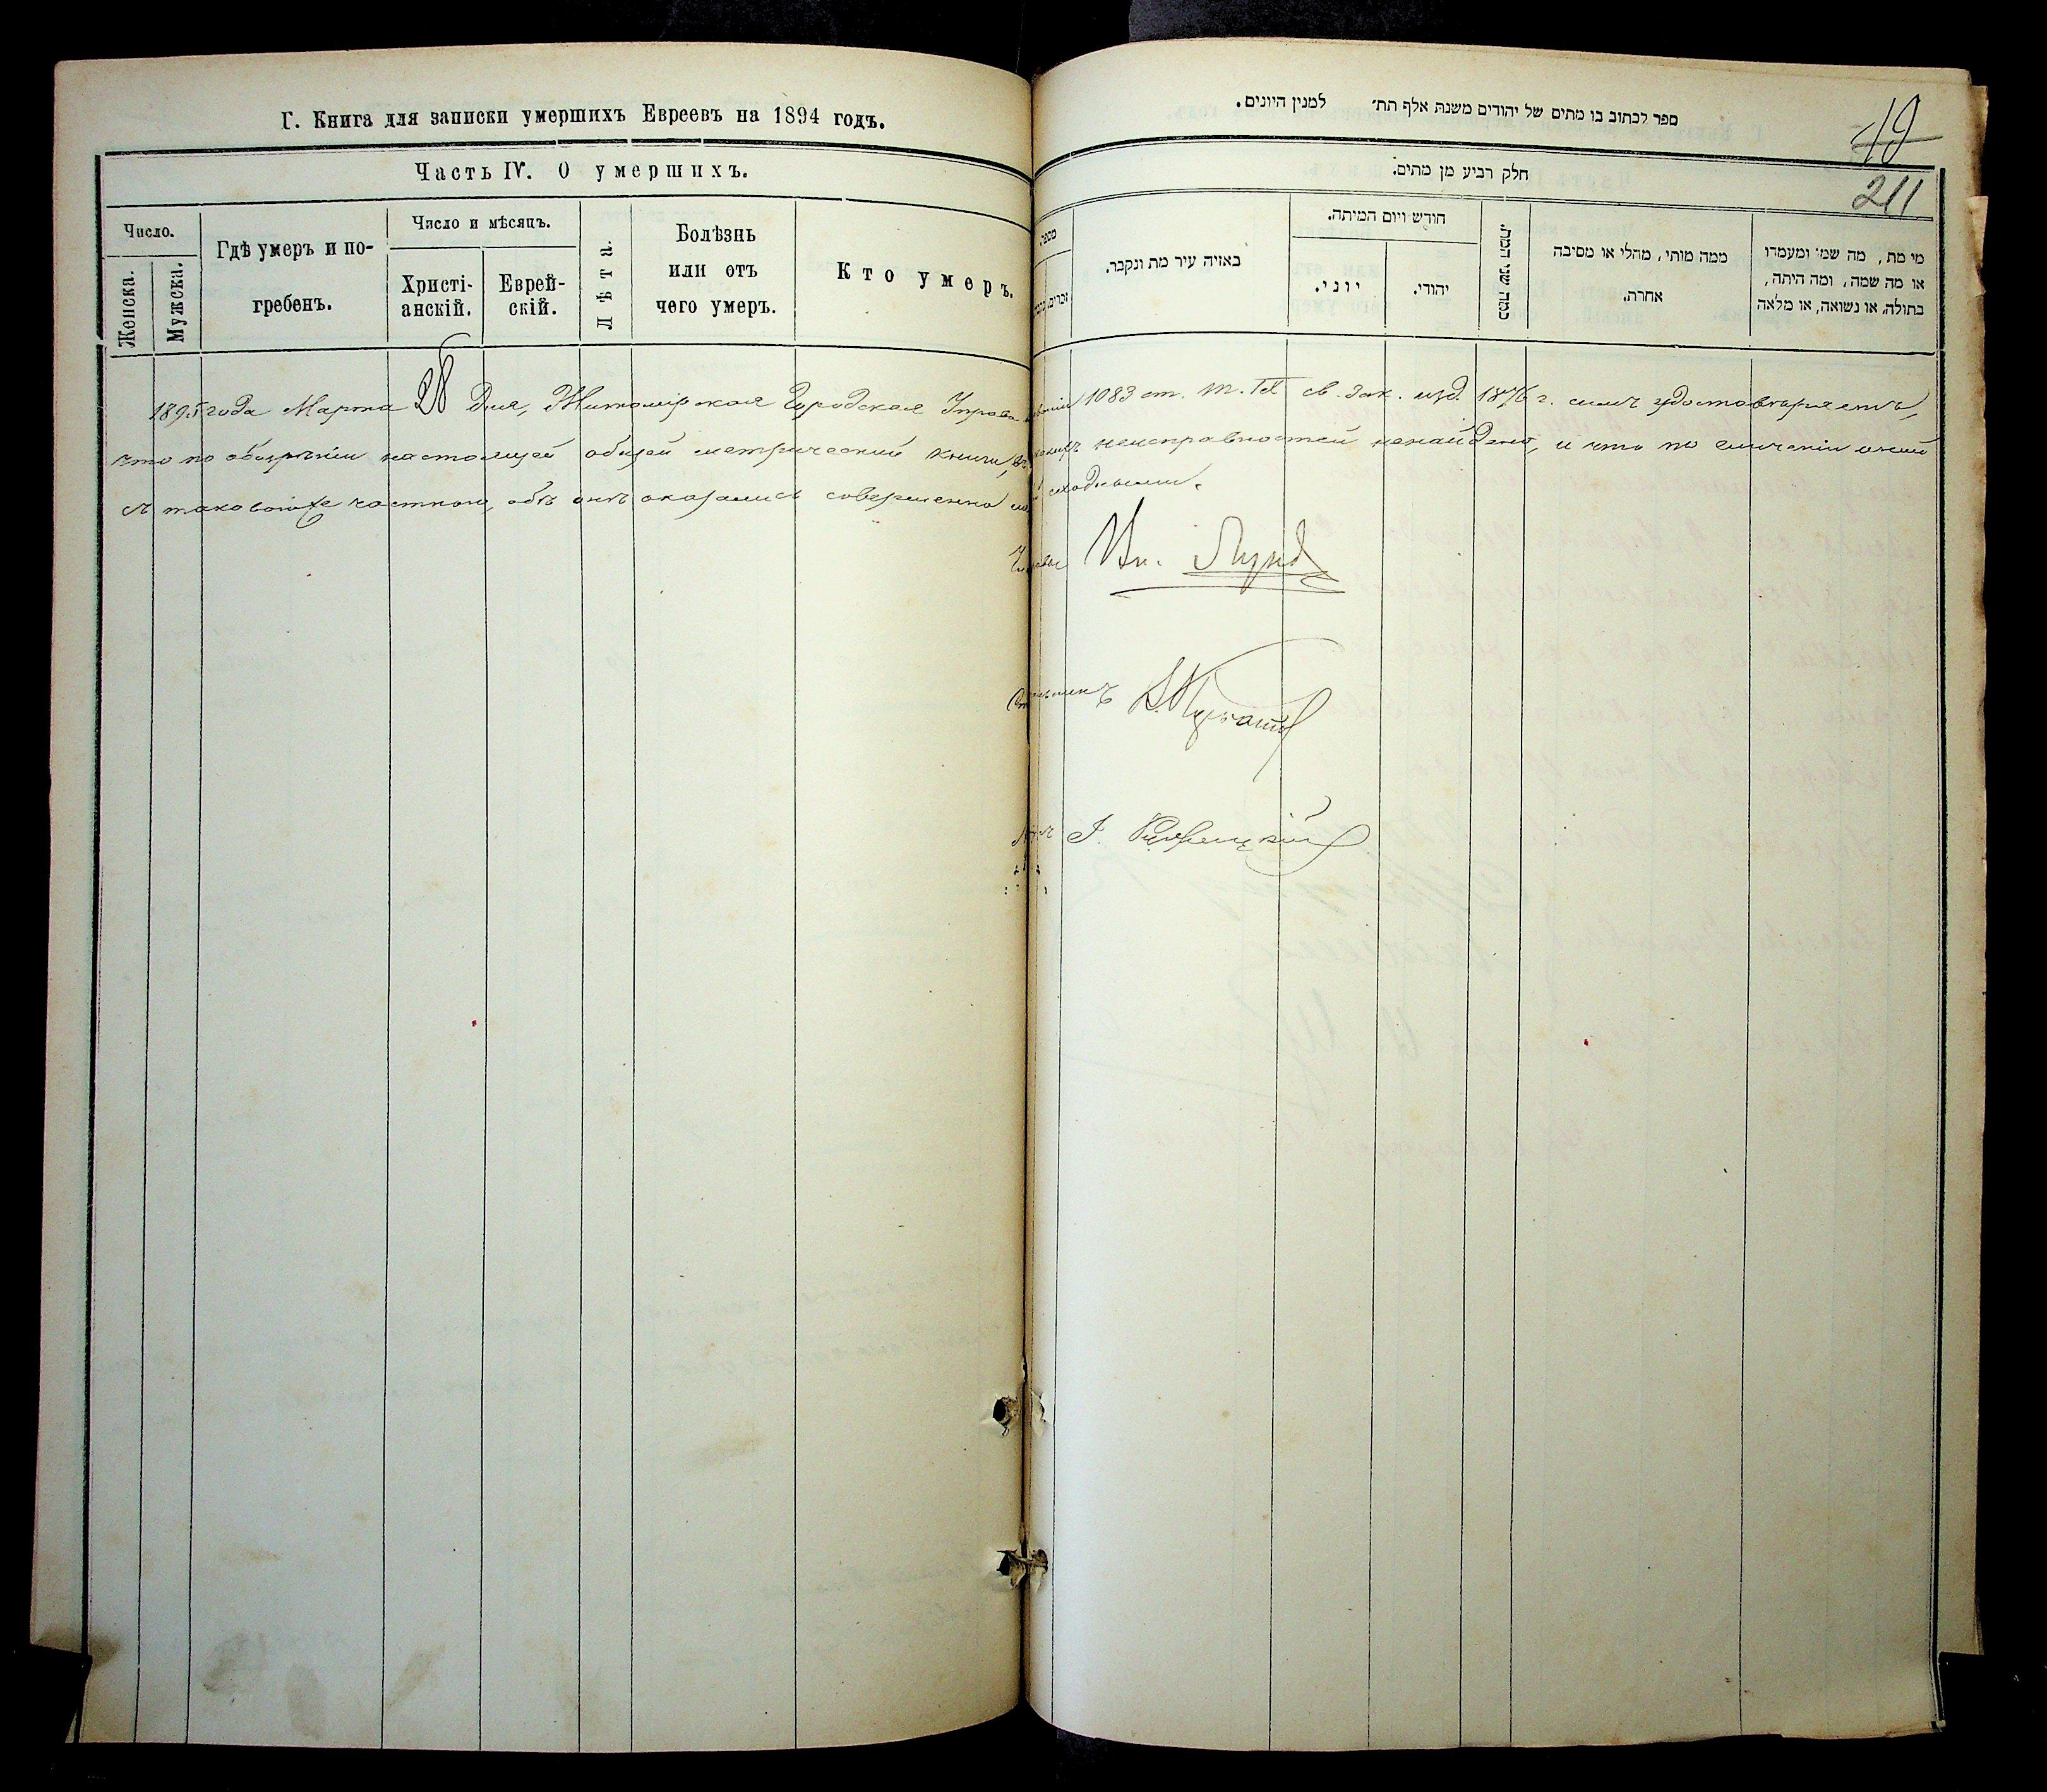 Г. Книга для записки умершихъ Евреевъ на 1894 годъ.
Часть IV. О умершихъ.
Число.
Женска.
Мужска.
Гдѣ умеръ и по-
гребенъ.
Число и мѣсяцъ.
Христі-
анскій.
Еврей-
скій.
Лѣта.
Болѣзнь
или отъ
чего умеръ.
Кто умеръ.
ספר לכתוב בו מתים של יהודים משנת אלף תת׳ למנין היונים.
19
211
חלק רביע מן מתים.
באיזה עיר מת ונקבר.
חודש ויום המיתה.
יוני.
יהודי.
כמה שני המת.
ממה מותי, מהלי או מסיבה
אחרת.
מי מת, מה שמו ומעמדו
או מה שמה, ומה היתה,
בתולה, או נשואה, או מלאה
1895 года Марта 28 дня, Житомірская Городская Управа 1083 ст. т. IX св. Зак. изд. 1876 г. симъ удостовѣряетъ,
что по обозрѣніи настоящей общей метрической книги, неисправностей ненайдено, и что по сличеніи оной
съ таковоюже частною, обѣ онѣ оказались совершенно сходными.